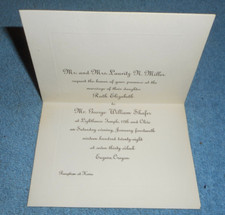 Mr. and Mrs. Lauritz R. Miller
request the honor of your presence at the
marriage of their daughter
Ruth Elizabeth
to
Mr. George William Shafer
at Eighteenth and Olive
on Saturday evening, January fourteenth
nineteen hundred thirty eight
at nine thirty o'clock
Eugene, Oregon
Reception at Home